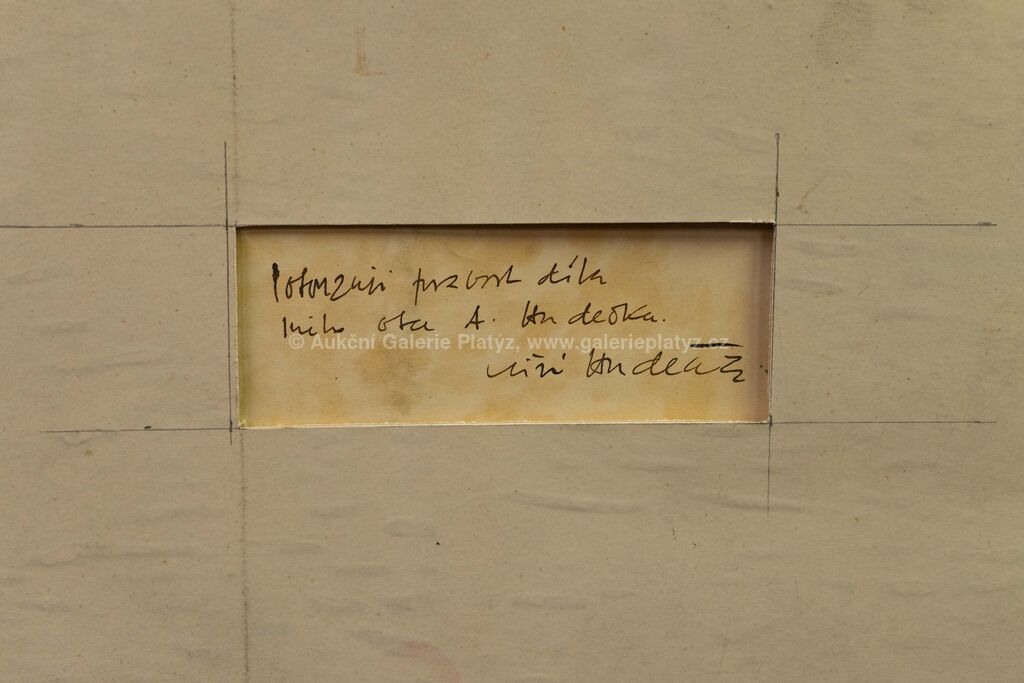 Potvrzuji pravost díla
mého otce A. Hudečka.
© Aukční Galerie Platýz, www.galerieplatyz.cz
Jiří Hudeček